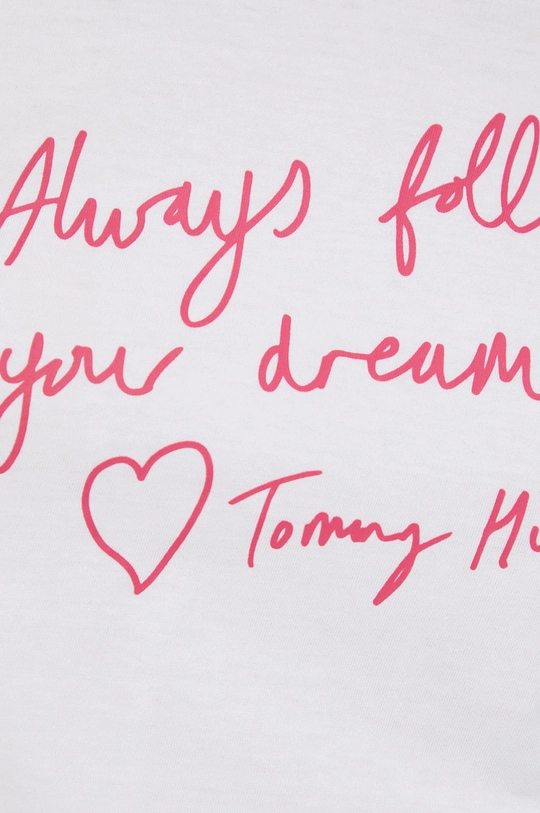 Always foll
your dream
Tommy H